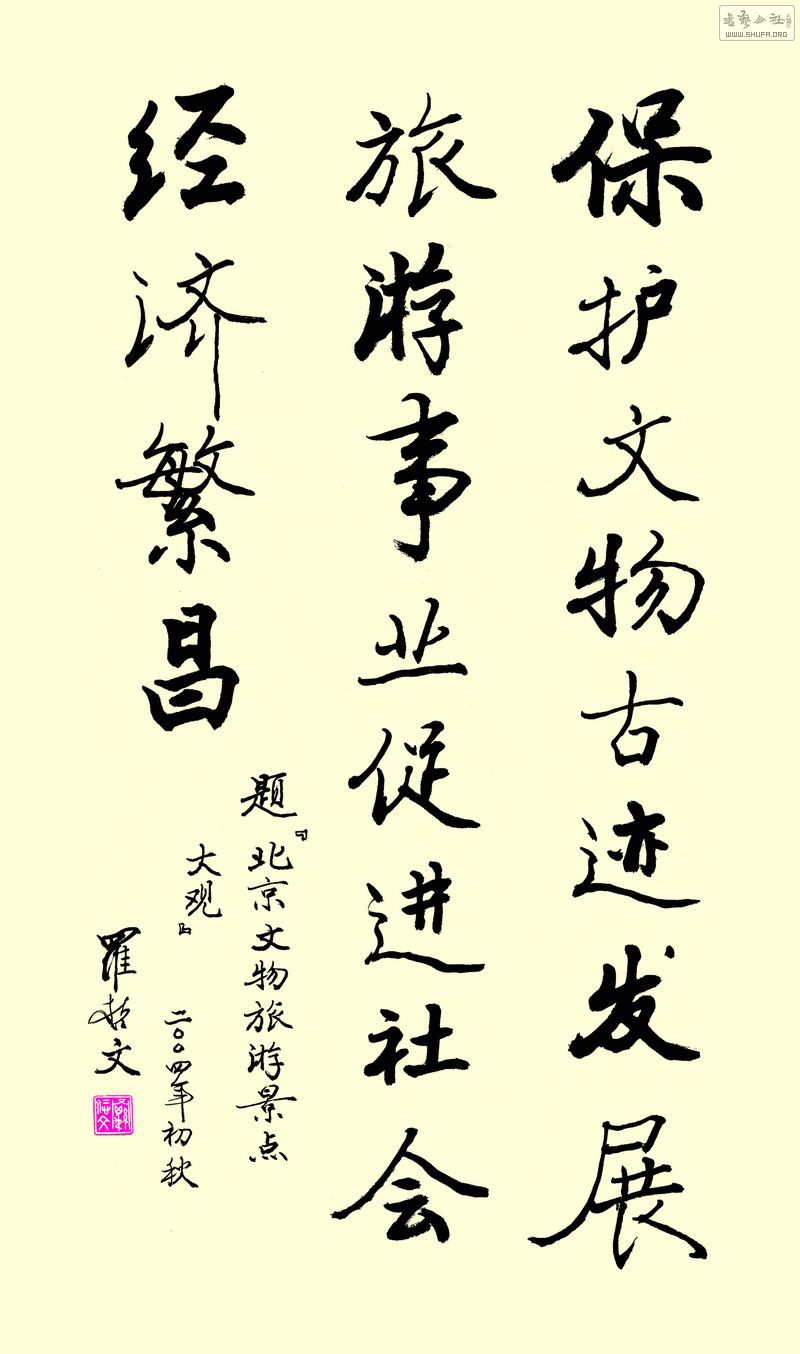 保护文物古迹发展
旅游事业促进社会
经济繁昌
题『北京文物旅游景点
大观』
二〇〇四年初秋
罗哲文
书艺公社
WWW.SHUFA.ORG